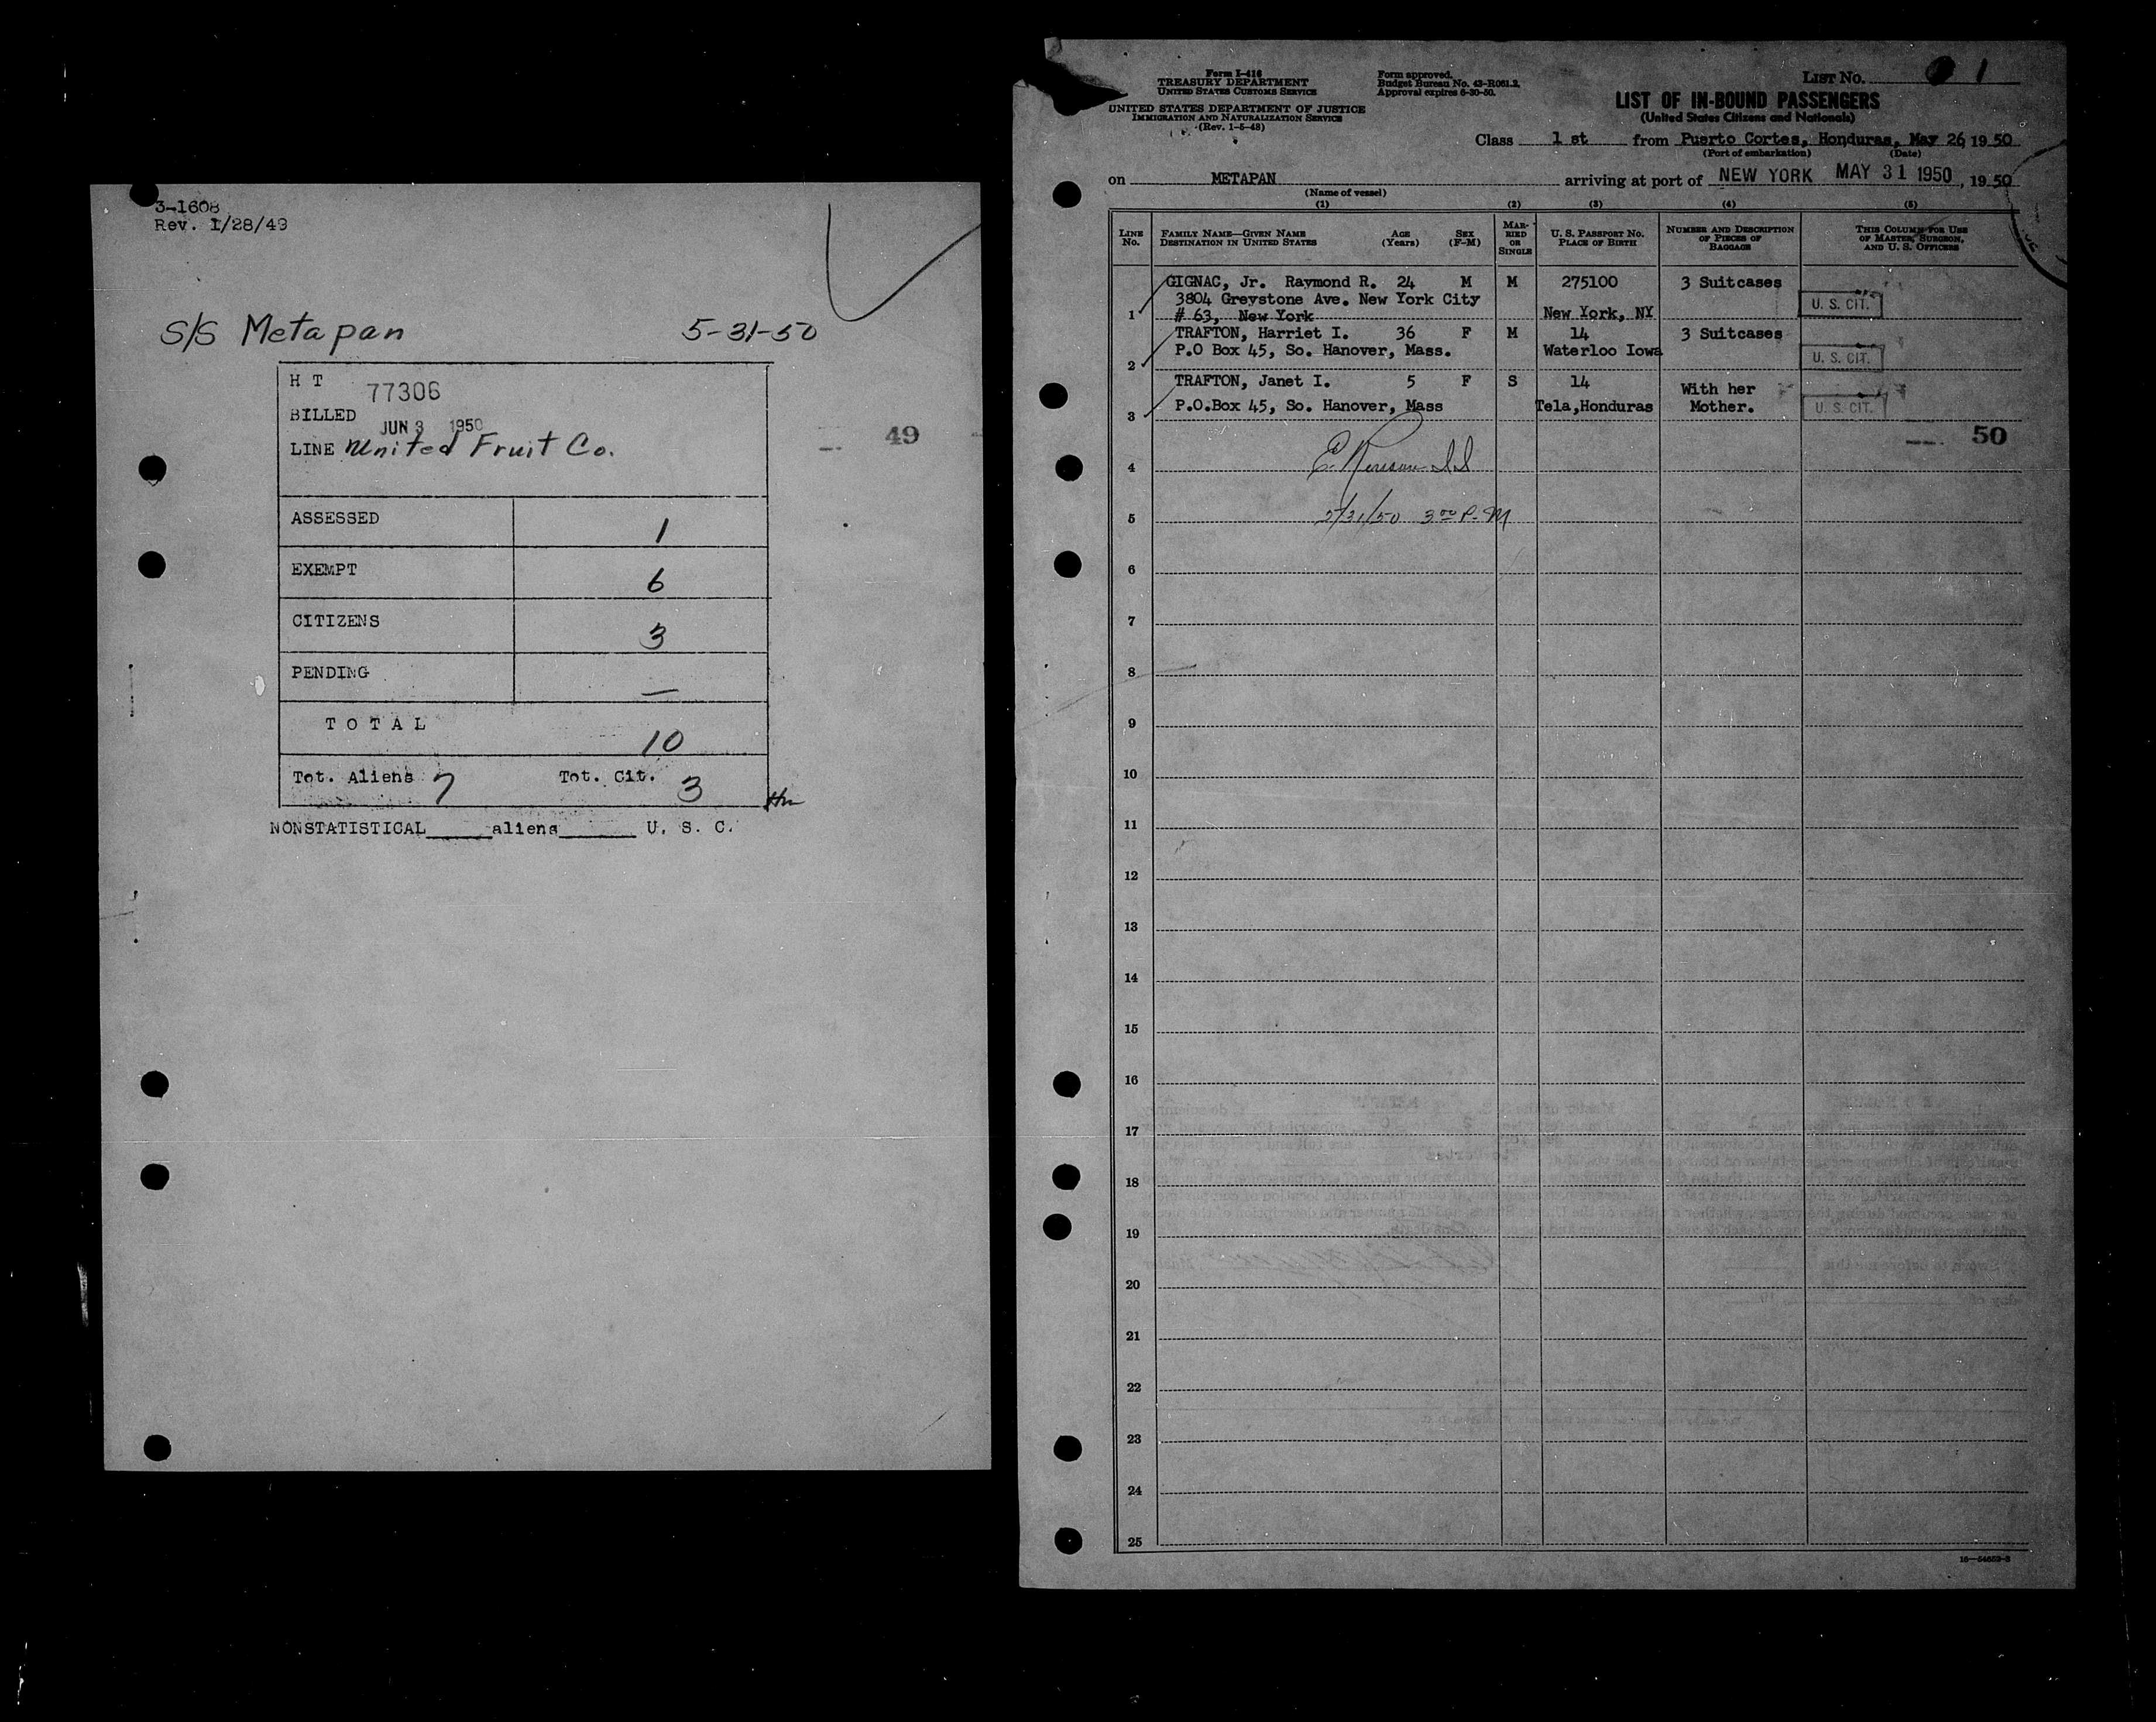 3-1608
Rev. 1/28/49
S/S Metapan 5-31-50
H T 77306
BILLED JUN 3 1950
LINE United Fruit Co.
49
ASSESSED 1
EXEMPT 6
CITIZENS 3
PENDING —
TOTAL 10
Tot. Aliens 7 Tot. Cit. 3
NONSTATISTICAL_____aliens______ U. S. C.
Form I-416
TREASURY DEPARTMENT
UNITED STATES CUSTOMS SERVICE
UNITED STATES DEPARTMENT OF JUSTICE
IMMIGRATION AND NATURALIZATION SERVICE
(Rev. 1-5-48)
Form approved.
Budget Bureau No. 43-R061.2.
Approval expires 6-30-50.
LIST NO. 1
LIST OF IN-BOUND PASSENGERS
(United States Citizens and Nationals)
Class 1 st from Puerto Cortes, Honduras, May 26, 19 50
(Port of embarkation) (Date)
on METAPAN arriving at port of NEW YORK MAY 31 1950, 19 50
(Name of vessel)
(1) (2) (3) (4) (5)
LINE No. FAMILY NAME—GIVEN NAME DESTINATION IN UNITED STATES AGE (Years) SEX (F-M) MARRIED OR SINGLE U. S. PASSPORT NO. PLACE OF BIRTH NUMBER AND DESCRIPTION OF PIECES OF BAGGAGE THIS COLUMN FOR USE OF MASTER, SURGEON, AND U. S. OFFICERS
GIGNAC, Jr. Raymond R. 24 M M 275100 3 Suitcases
3804 Greystone Ave. New York City U. S. CIT.
1 # 63, New York New York, NY
TRAFTON, Harriet I. 36 F M 14 3 Suitcases
P.O Box 45, So. Hanover, Mass. Waterloo Iowa U. S. CIT.
2
TRAFTON, Janet I. 5 F S 14 With her
P.O.Box 45, So. Hanover, Mass Tela,Honduras Mother. U. S. CIT.
3
50
4
5 5/31/50 3 00 P.M
6
7
8
9
10
11
12
13
14
15
16
17
18
19
20
21
22
23
24
25
16—54652-3